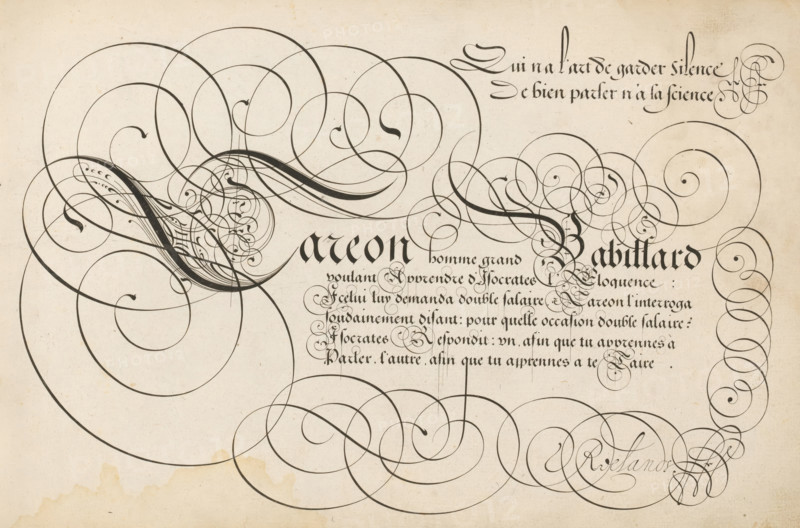 Qui n'a l'art de garder silence
De bien parler n'a la science
Careon homme grand Babillard
voulant Apprendre d'Isocrates l'Eloquence :
Icelui luy demanda double salaire Careon l'interroga
soudainement disant: pour quelle occasion double salaire?
Isocrates Respondit: un, afin que tu apprennes a
Parler, l'autre, afin que tu apprennes a te Taire .
D Roelands